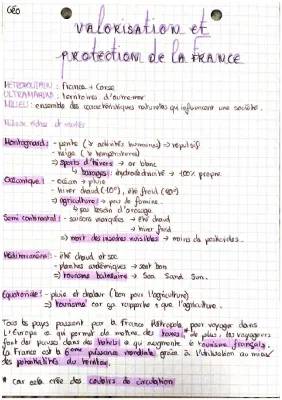 GÉO
VALORISATION et
PROTECTION DE LA FRANCE
METROPOLITAIN : France + Corse
ULTRAMARIN : territoires d'outre-mer
MILIEU : ensemble des caractéristiques naturelles qui influencent une société.
Milieux riches et variés
Montagnard : - pente (↘ activités humaines) → répulsif
- neige (↘ températures)
⇒ sports d'hivers → or blanc
↳ barrages : hydroélectricité → 100% propre.
Océanique : - océan → pluie
- hiver chaud (10°), été froid (20°)
⇒ agriculture : → pas de famine.
↳ pas besoin d'arrosage.
Semi continental : - saisons marquées → été chaud
→ hiver froid
⇒ mort des insectes nuisibles → moins de pesticides.
Méditerranéen : - été chaud et sec
- plantes endémiques → sent bon
⇒ tourisme balnéaire → Sea. Sand. Sun.
Equatorial : - pluie et chaleur (bon pour l'agriculture)
⇒ tourisme car ça rapporte + que l'agriculture.
Tous les pays passent par la France Métropole pour voyager dans
L'Europe ce qui permet de mettre des taxes * de plus, les voyageurs
font des pauses dans des hôtels ce qui augmente le tourisme français.
La France est la 6ème puissance mondiale grâce à l'utilisation au mieux
des potentialités du territoire.
* car cela crée des couloirs de circulation